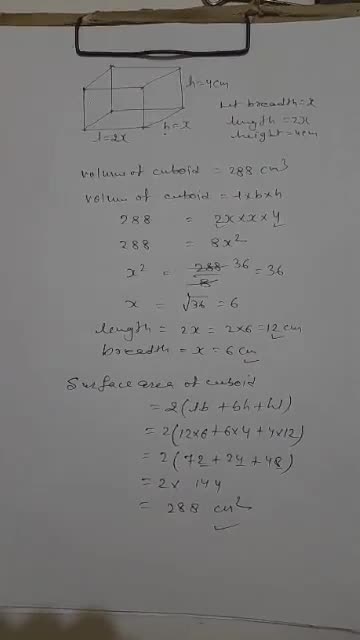 h=4cm
l=2x
b=x
Let breadth=x
length=2x
height=4cm
volume of cuboid = 288 cm³
volum of cuboid = l×b×h
288 = 2x×x×4
288 = 8x²
x² = 288/8 36 = 36
x = √36 = 6
length = 2x = 2×6=12 cm
breadth = x = 6 cm
Surface area of cuboid
= 2(lb + bh + hl)
= 2(12×6 + 6×4 + 4×12)
= 2(72 + 24 + 48)
= 2× 144
= 288 cm²